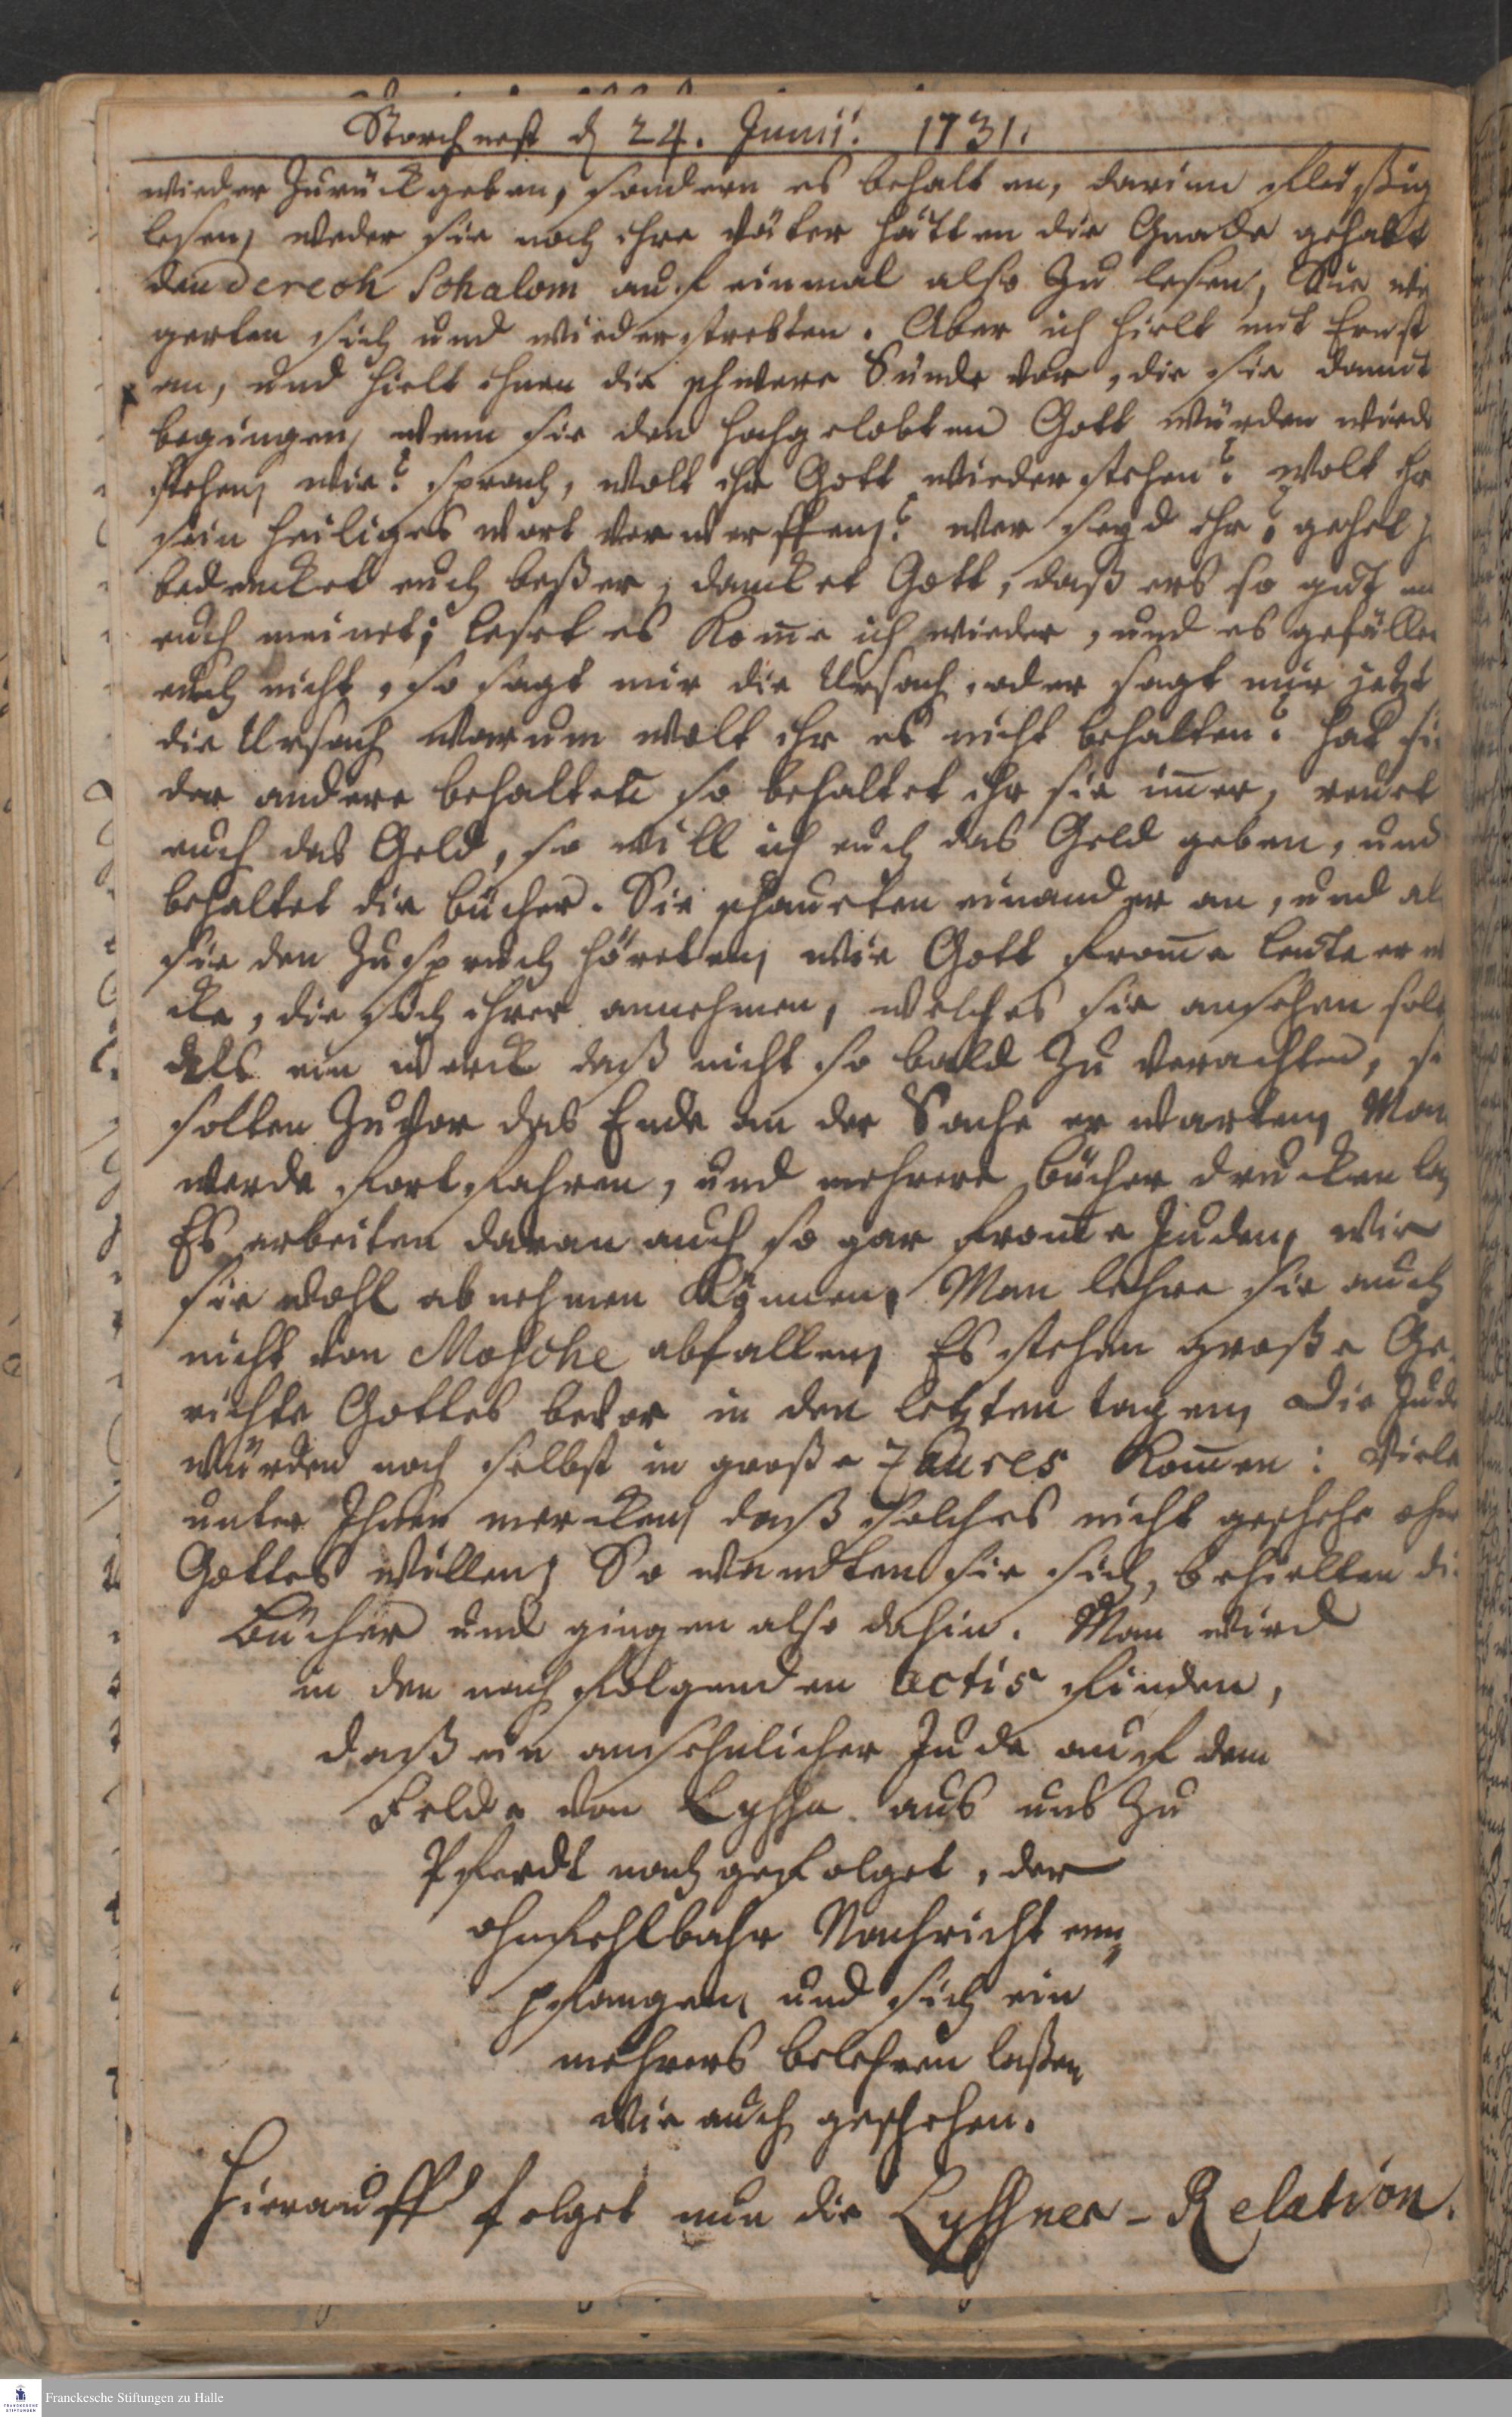 Storchnest d 24. Junii. 1731.
wieder zurückgeben, sondern es behalten, darinn fleißig
lesen, weder sie noch ihre Väter hätten die Gnade gehabt
den Derech Schalom auf einmal also zu lesen, Sie wei
gerten sich und wiederstrebten. Aber ich hielt mit Ernst
an, und hielt ihnen die schwere Sünde vor, die sie damit
begiengen, wenn sie den hochgelobten Gott würden wieder
stehen, wie? sprach, wolt ihr Gott wiederstehen? wolt ihr
sein heiliges Wort verwerffen? wer seyd ihr? gehet
bedencket euch beßer, dancket Gott, daß ers so gut
euch meinet; leset es Kom̄e ich wieder, und es gefället
euch nicht, so sagt mir die Ursach, oder sagt mir jetzt
die Ursach warum wolt ihr es nicht behalten? hat sie
der andere behalten so behaltet ihr sie im̄er, reuet
euch das Geld, so will ich euch das Geld geben, und
behaltet die Bücher. Sie schaueten einander an, und als
sie den Zuspruch höreten, wie Gott from̄e Leute erwe
cke, die sich ihrer annehmen, welches sie ansehen solt
als ein Werck daß nicht so bald zu verachten,
solten zuvor das Ende an der Sache erwarten, Man
werde fortfahren, und mehrere Bücher drucken laß
Es arbeiten daran auch so gar from̄e Juden, wie
sie wohl abnehmen können, Man lehre sie auch
nicht von Mosche abfallen, Es stehen große Ge-
richte Gottes bevor in den letzten tagen, Die Jude
würden noch selbst in große Zaures kom̄en: Viele
unter Ihnen mercken, daß solches nicht geschehe ohne
Gottes willen, So wendten sie sich, behielten die
Bücher und giengen also dahin. Man wird
in den nachfolgenden actis finden,
daß ein ansehnlicher Jude auf dem
Felde von Lyssa aus uns zu
Pferdt nachgefolget, der
ohnfehlbahr Nachricht em-
pfangen, und sich ein
mehrers belehren laßen
wie auch geschehen.
Hierauff folget nun die Lyssner-Relation.
Franckesche Stiftungen zu Halle